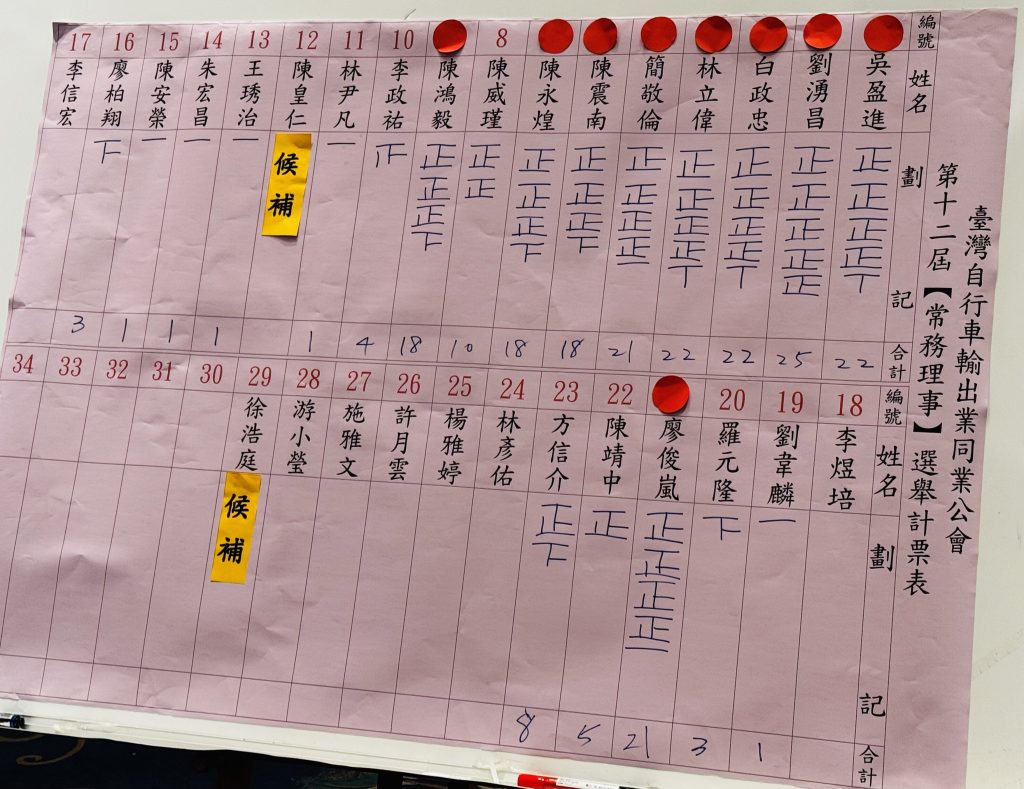 臺灣自行車輸出業同業公會
第十二屆【常務理事】選舉計票表
編號
姓名
劃記
合計
吳盈進
正正正正丅
22
劉湧昌
正正正正正
25
白政忠
正正正正丅
22
林立偉
正正正正丅
22
簡敬倫
正正正正一
21
陳震南
正正正下
18
陳永煌
正正正下
18
8
陳威瑾
正正
10
陳鴻毅
正正正下
18
10
李政祐
4
11
林尹凡
一
1
12
陳皇仁
候補
13
王琇治
一
1
14
朱宏昌
一
1
15
陳安榮
一
1
16
廖柏翔
下
3
17
李信宏
編號
姓名
劃記
合計
18
李煜培
19
劉韋麟
一
1
20
羅元隆
下
3
廖俊嵐
正正正正一
21
22
陳靖中
正
5
23
方信介
正下
8
24
林彥佑
25
楊雅婷
26
許月雲
27
施雅文
28
游小瑩
29
徐浩庭
候補
30
31
32
33
34